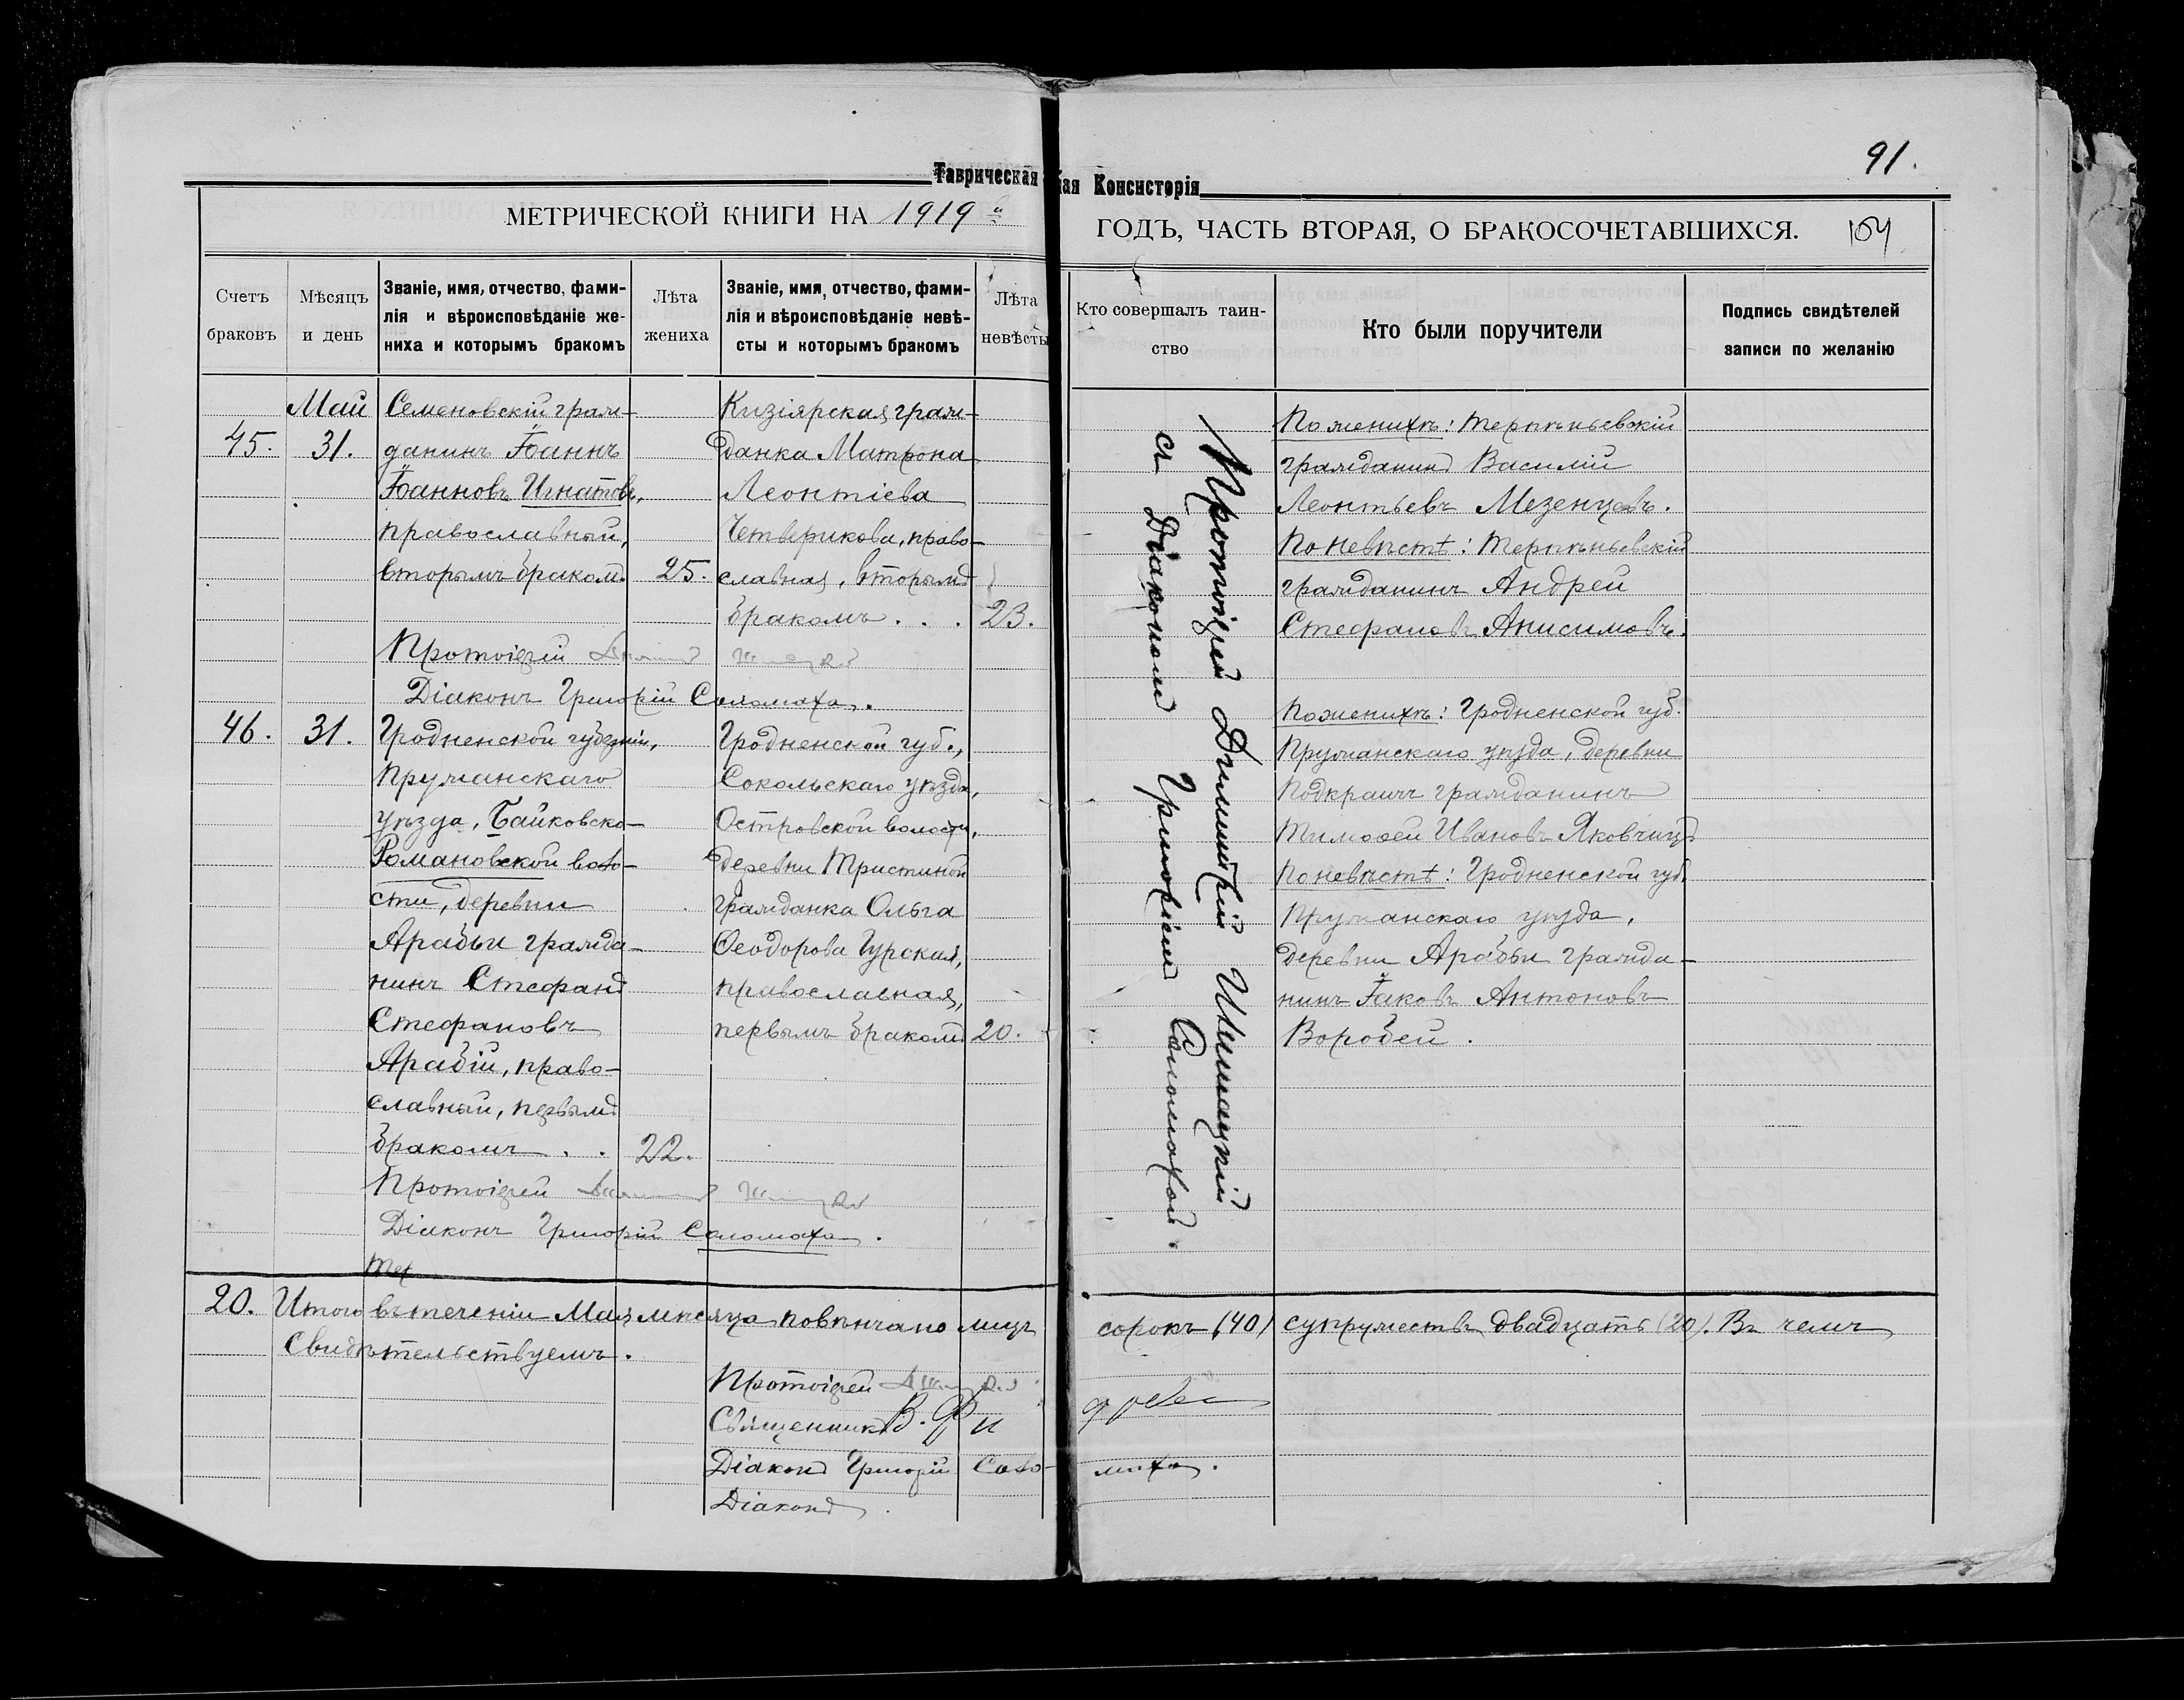 91.
Таврическая
ая Консисторія
МЕТРИЧЕСКОЙ КНИГИ НА 1919 й
ГОДЪ, ЧАСТЬ ВТОРАЯ, О БРАКОСОЧЕТАВШИХСЯ.
Счетъ браковъ
Мѣсяцъ и день
Званіе, имя, отчество, фами-
лія и вѣроисповѣданіе же-
ниха и которымъ бракомъ
Лѣта жениха
Званіе, имя, отчество, фами-
лія и вѣроисповѣданіе невѣ-
сты и которымъ бракомъ
Лѣта невѣсты
Кто совершалъ таин-
ство
Кто были поручители
Подпись свидѣтелей
записи по желанію
45.
Май
31.
Семеновскій граж-
данинъ Іоаннъ
Іоанновъ Игнатовъ,
православный,
вторымъ бракомъ.
25.
Кизіярская граж-
данка Матрона
Леонтіева
Четверикова, право-
славная, вторымъ
бракомъ . . .
23.
Протоіерей
Діаконъ Григорій Соломаха.
Протоіерей Димитрій Шишацкій
съ Діакономъ Григоріемъ Соломахой.
По женихѣ: Терпѣньевскій
гражданинъ Василій
Леонтьевъ Мезенцевъ.
По невѣстѣ: Терпѣньевскій
гражданинъ Андрей
Стефановъ Анисимовъ.
46.
31.
Гродненской губерніи,
Пружанскаго
уѣзда, Байковско-
Романовской воло-
сти, деревни
Арабьи гражда-
нинъ Стефанъ
Стефановъ
Арабій, право-
славный, первымъ
бракомъ . .
22.
Гродненской губ.,
Сокольскаго уѣзда,
Островской волости,
деревни Тристиной
гражданка Ольга
Ѳеодорова Гурская,
православная,
первымъ бракомъ
20.
Протоіерей
Діаконъ Григорій Соломаха.
По женихѣ: Гродненской губ.
Пружанскаго уѣзда, деревни
Подкраичъ гражданинъ
Тимоѳей Ивановъ Яковчицъ
По невѣстѣ: Гродненской губ.
Пружанскаго уѣзда,
деревни Арабьи гражда-
нинъ Іаковъ Антоновъ
Воробей.
20. Итого въ теченіи Мая мѣсяца повѣнчано лицъ сорокъ (40) супружествъ двадцать (20). Въ чемъ
Свидѣтельствуемъ.
Протоіерей
Священникъ В.
Діаконъ Григорій Соло-
маха.
Діаконъ